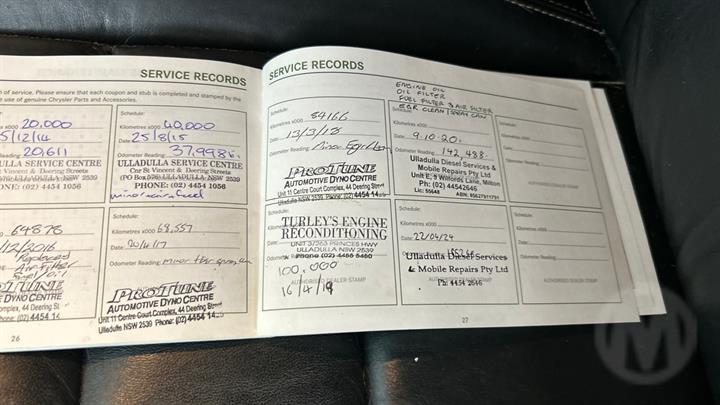 SERVICE RECORDS
of service. Please ensure that each coupon and stub is completed and stamped by the
use of genuine Chrysler Parts and Accessories.
20,000
15/12/14
20,611
ULLADULLA SERVICE CENTRE
Cnr St Vincent & Deering Streets
ULLADULLA NSW 2539
PHONE: (02) 4454 1056
Schedule:
Kilometres x000 40,000
Date: 25/8/15
Odometer Reading: 37,998
ULLADULLA SERVICE CENTRE
Cnr St Vincent & Deering Streets
(PO Box 526) ULLADULLA NSW 2539
PHONE: (02) 4454 1056
64878
12/2016
Replaced
Air filter
Complex, 44 Deering St
Phone: (02) 4454 14
Schedule:
Kilometres x000 68,557
Date: 20/4/17
Odometer Reading: minor
PROTUNE
AUTOMOTIVE DYNO CENTRE
Unit 11 Centre Court Complex, 44 Deering Street
Ulladulla NSW 2539 Phone: (02) 4454 14
26
SERVICE RECORDS
Schedule:
Kilometres x000 84166
Date: 13/3/18
Odometer Reading: Minor
PROTUNE
AUTOMOTIVE DYNO CENTRE
Unit 11 Centre Court Complex, 44 Deering Street
Ulladulla NSW 2539 Phone: (02) 4454 14
ENGINE OIL
OIL FILTER
FUEL FILTER & AIR FILTER
EGR CLEAN
Schedule:
Kilometres x000
Date: 9.10.20.
Odometer Reading: 142,488.
Ulladulla Diesel Services &
Mobile Repairs Pty Ltd
Unit E, 9 Wilfords Lane, Milton
Ph: (02) 44542646
Lic: 55648 ABN: 85627911791
Schedule:
Kilometres x000
Date:
Odometer Reading:
AUTHORISED DEALER STAMP
Schedule:
TURLEY'S ENGINE
RECONDITIONING
UNIT 3/263 PRINCES HWY
ULLADULLA NSW 2539
Phone (02) 4455 5450
100,000
16/4/19
Schedule:
Kilometres x000
Date: 22/04/24
Odometer Reading:
Ulladulla Diesel Services
& Mobile Repairs Pty Ltd
Ph: 4454 2646
Schedule:
Kilometres x000
Date:
Odometer Reading:
AUTHORISED DEALER STAMP
27
M